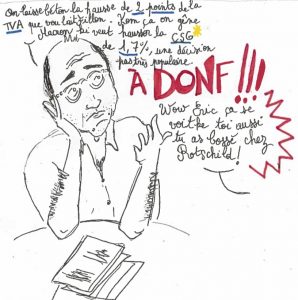 On laisse béton la hausse de 2 points de la
TVA que voulait Fillon. Kom ça on gêne
Macron ki veut hausser la CSG*
Mr
de 1,7%, une décision
pas très populaire.
À DONF!!!
Wow Éric ça se
voit ke toi aussi
tu as bossé chez
Rotschild!